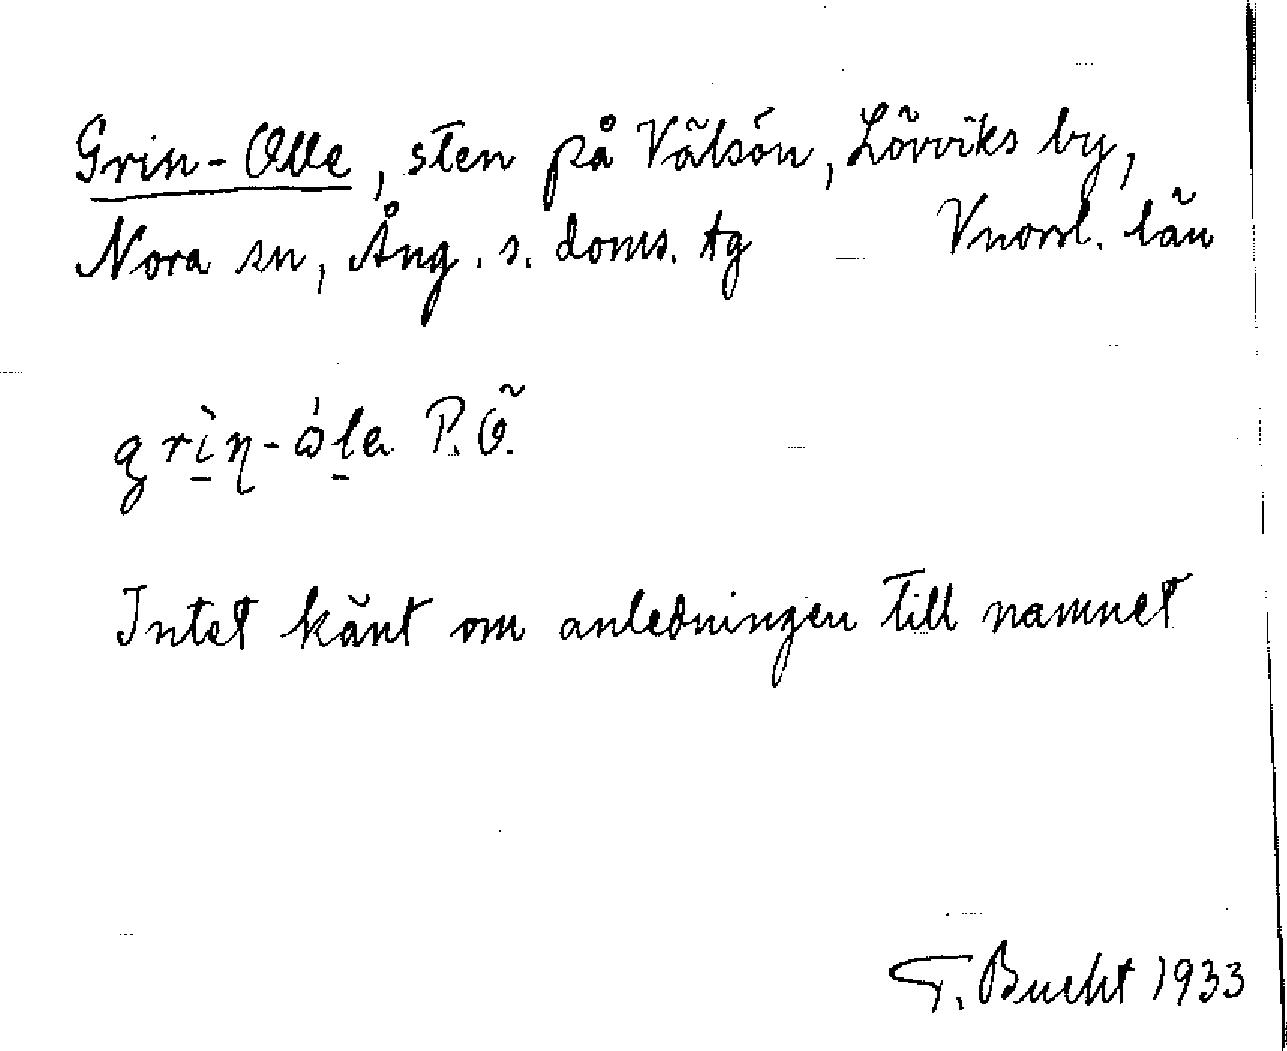 Grin-Olle, sten på Välsön, Lövviks by,
Nora sn, Ång. s. doms. tg Vnorrl. län
grì̠n-ὼl̠a P.Ö.
Intet känt om anledningen till namnet
T. Bucht 1933